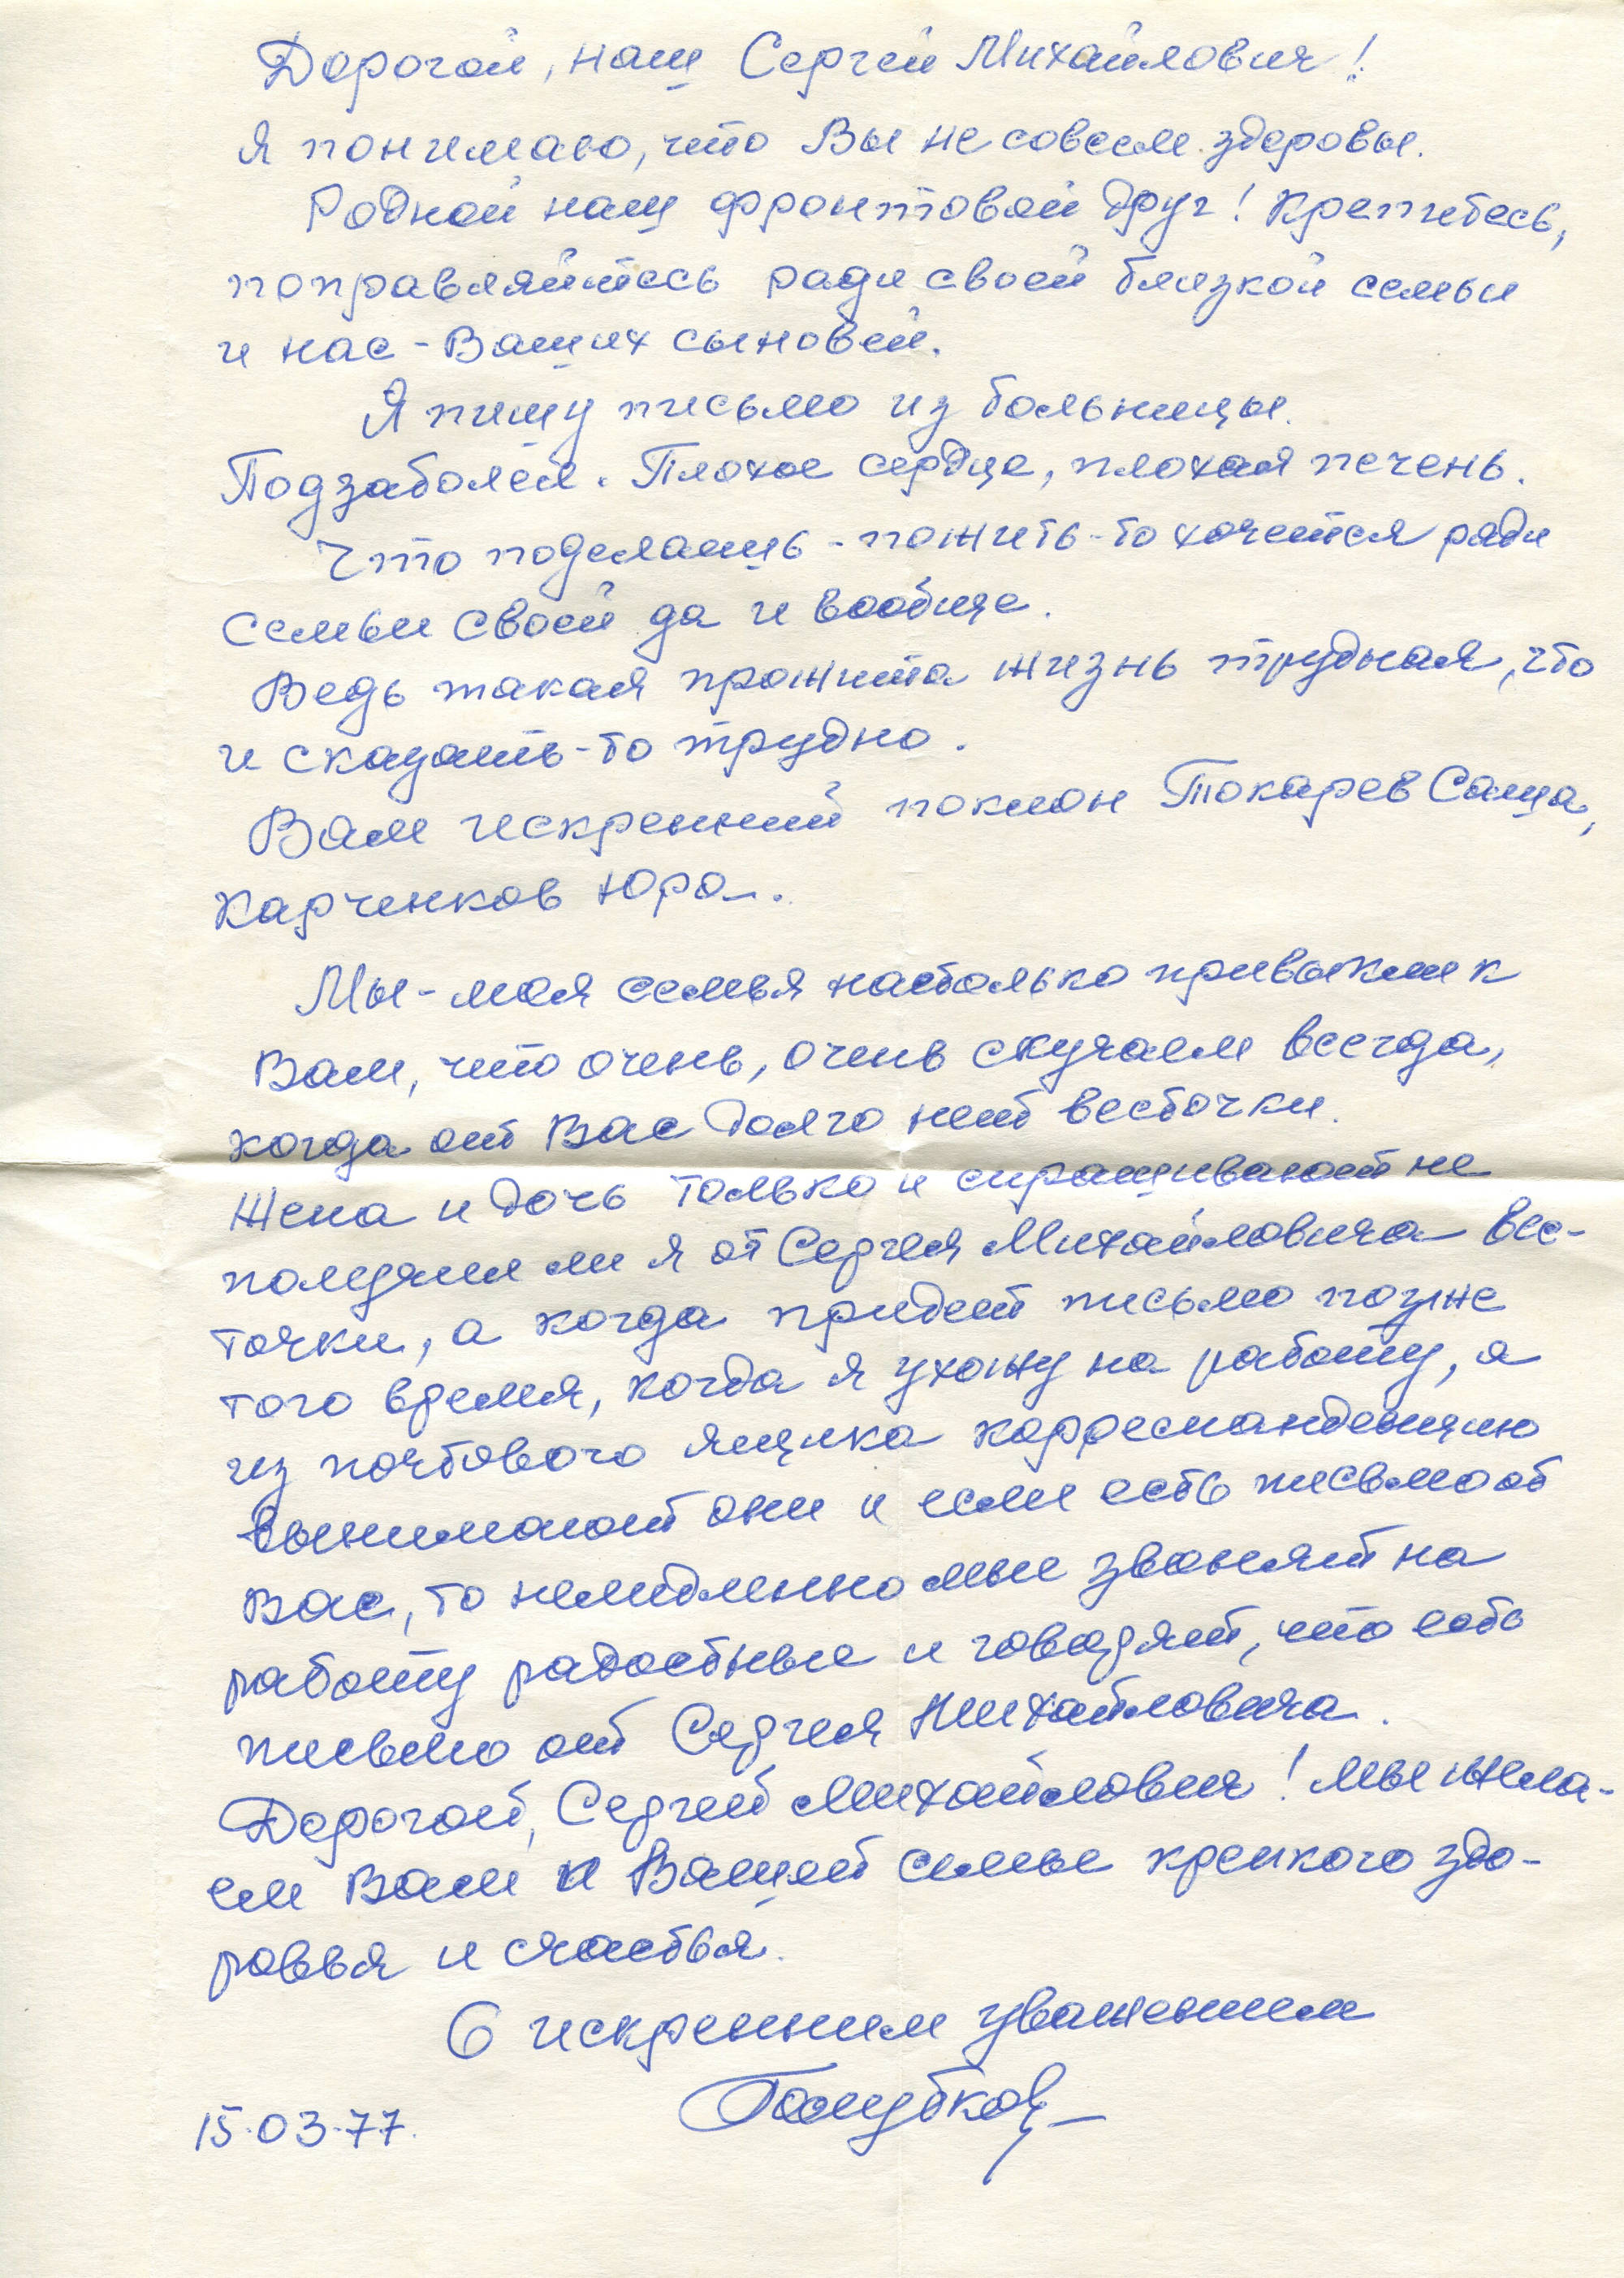 Дорогой, наш Сергей Михайлович!
Я понимаю, что Вы не совсем здоровы.
Родной наш фронтовой друг! Крепитесь,
поправляйтесь ради своей близкой семьи
и нас - Ваших сыновей.
Я пишу письмо из больницы.
Подзаболел. Плохое сердце, плохая печень.
Что поделаешь - пожить-то хочется ради
семьи своей да и вообще.
Ведь такая прожита жизнь трудная, что
и сказать-то трудно.
Вам искренний поклон Токарев Саша,
Карченков Юра.
Мы - моя семья настолько привыкли к
Вам, что очень, очень скучаем всегда,
когда от Вас долго нет весточки.
Жена и дочь только и спрашивают не
получил ли я от Сергея Михайловича вес-
точки, а когда придет письмо позже
того время, когда я ухожу на работу, а
из почтового ящика корреспанденцию
вынимают они и если есть письмо от
Вас, то немедленно мне звонят на
работу радостные и говорят, что есть
письмо от Сергея Михайловича.
Дорогой, Сергей Михайлович! Мы жела-
ем Вам и Вашей семье крепкого здо-
ровья и счастья.
С искренним уважением
15.03.77. Голубков